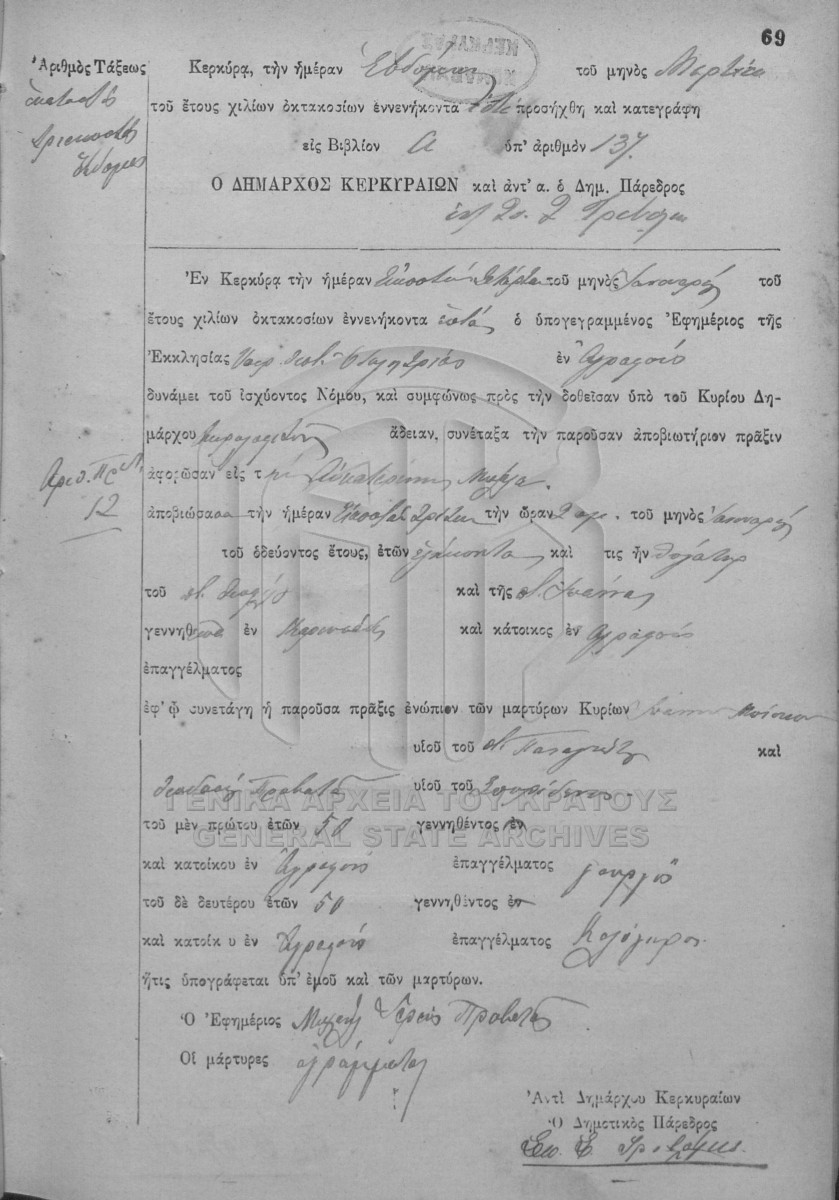 69
Ἀριθμὸς Τάξεως
ἑκατοστὸς
τριακοστὸς
ἕβδομος
Κερκύρᾳ, τὴν ἡμέραν Ἑβδόμην τοῦ μηνὸς Μαρτίου
τοῦ ἔτους χιλίων ὀκτακοσίων ἐννενήκοντα ἑπτὰ προσήχθη καὶ κατεγράφη
εἰς Βιβλίον Α ὑπ' ἀριθμὸν 137
Ο ΔΗΜΑΡΧΟΣ ΚΕΡΚΥΡΑΙΩΝ καὶ ἀντ' α. ὁ Δημ. Πάρεδρος
Ἐν Κερκύρᾳ τὴν ἡμέραν Εἰκοστὴν τετάρτην τοῦ μηνὸς Ἰανουαρίου τοῦ
ἔτους χιλίων ὀκτακοσίων ἐννενήκοντα ἑπτὰ ὁ ὑπογεγραμμένος Ἐφημέριος τῆς
Ἐκκλησίας ἐν Ἀγραφοῖς
δυνάμει τοῦ ἰσχύοντος Νόμου, καὶ συμφώνως πρὸς τὴν δοθεῖσαν ὑπὸ τοῦ Κυρίου Δη-
μάρχου ἄδειαν, συνέταξα τὴν παροῦσαν ἀποβιωτήριον πρᾶξιν
Ἀριθ. Πρωτ.
12
ἀφορῶσαν εἰς τὴν Αἰκατερίνην
ἀποβιώσασα τὴν ἡμέραν Εἰκοστὴν τρίτην τὴν ὥραν 2 μμ. τοῦ μηνὸς Ἰανουαρίου
τοῦ ὁδεύοντος ἔτους, ἐτῶν ἑξήκοντα καὶ τις ἦν θυγάτηρ
τοῦ καὶ τῆς Ἰωάννας
γεννηθεῖσα ἐν Καρουσάδες καὶ κάτοικος ἐν Ἀγραφοῖς
ἐπαγγέλματος
ἐφ' ᾧ συνετάγη ἡ παροῦσα πρᾶξις ἐνώπιον τῶν μαρτύρων Κυρίων Ἰωάννου
υἱοῦ τοῦ Παναγιώτη καὶ
Θεοδώρου Προβατᾶ υἱοῦ τοῦ Σπυρίδωνος
τοῦ μὲν πρώτου ἐτῶν 50 γεννηθέντος ἐν
καὶ κατοίκου ἐν Ἀγραφοῖς ἐπαγγέλματος γεωργὸς
τοῦ δὲ δευτέρου ἐτῶν 50 γεννηθέντος ἐν
καὶ κατοίκ υ ἐν Ἀγραφοῖς ἐπαγγέλματος Καλόγηρος
ἥτις ὑπογράφεται ὑπ' ἐμοῦ καὶ τῶν μαρτύρων.
Ὁ Ἐφημέριος Ἱερεὺς Προβατᾶς
Οἱ μάρτυρες ἀγράμματοι
Ἀντὶ Δημάρχου Κερκυραίων
Ὁ Δημοτικὸς Πάρεδρος
ΓΕΝΙΚΑ ΑΡΧΕΙΑ ΤΟΥ ΚΡΑΤΟΥΣ
GENERAL STATE ARCHIVES